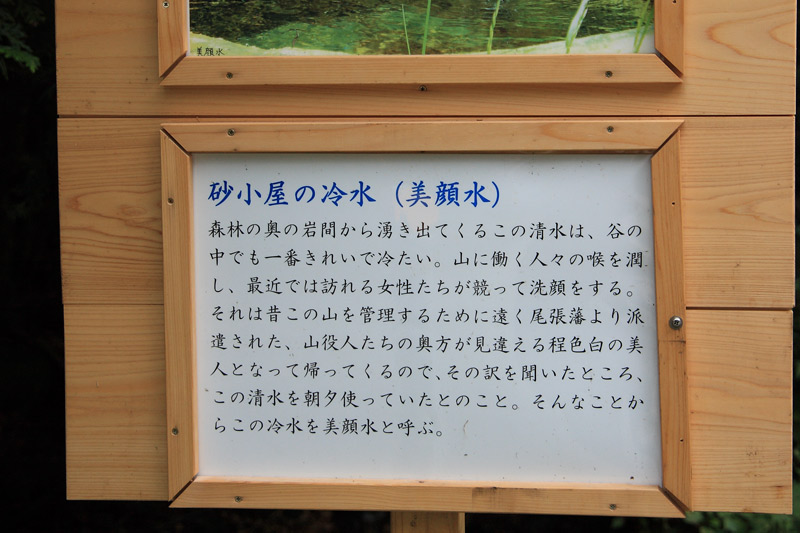 美顔水
砂小屋の冷水（美顔水）
森林の奥の岩間から湧き出てくるこの清水は、谷の
中でも一番きれいで冷たい。山に働く人々の喉を潤
し、最近では訪れる女性たちが競って洗顔をする。
それは昔この山を管理するために遠く尾張藩より派
遣された、山役人たちの奥方が見違える程色白の美
人となって帰ってくるので、その訳を聞いたところ、
この清水を朝夕使っていたとのこと。そんなことか
らこの冷水を美顔水と呼ぶ。